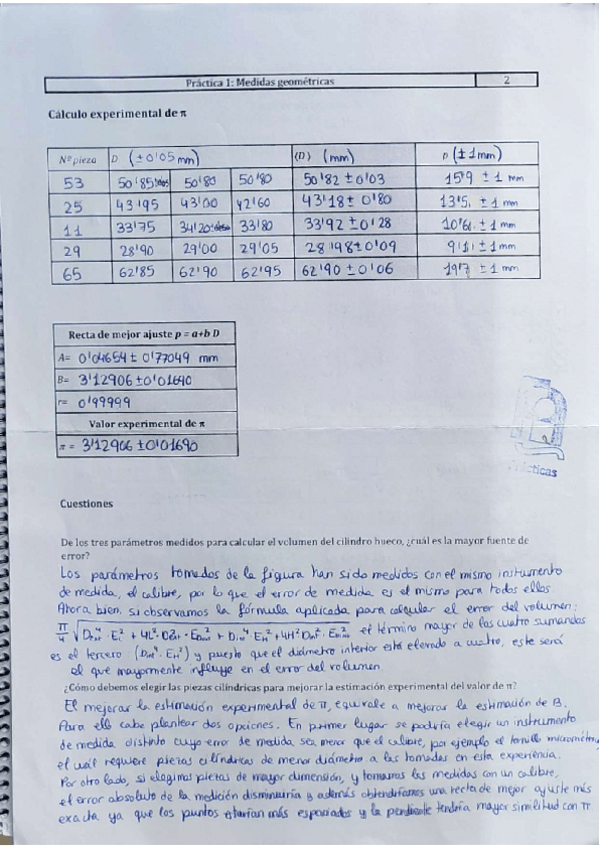 Práctica 1: Medidas geométricas 2
Cálculo experimental de π
Nº pieza D (±0'05 mm) ⟨D⟩ (mm) p (±1mm)
53 50'85 50'80 50'80 50'82 ± 0'03 15'9 ± 1 mm
25 43'95 43'00 42'60 43'18 ± 0'80 13'5, ± 1 mm
11 33'75 34'20 33'80 33'92 ± 0'28 10'6 ± 1 mm
29 28'90 29'00 29'05 28'98 ± 0'09 9'1 ± 1 mm
65 62'85 62'90 62'95 62'90 ± 0'06 19'7 ± 1 mm
Recta de mejor ajuste p = a+b D
A= 0'04654 ± 0'77049 mm
B= 3'12906 ± 0'01690
r= 0'99999
Valor experimental de π
π = 3'12906 ± 0'01690
prácticas
Cuestiones
De los tres parámetros medidos para calcular el volumen del cilindro hueco, ¿cuál es la mayor fuente de
error?
Los parámetros tomados de la figura han sido medidos con el mismo instrumento
de medida, el calibre, por lo que el error de medida es el mismo para todos ellos
Ahora bien, si observamos la fórmula aplicada para calcular el error del volumen:
el término mayor de los cuatro sumandos
es el tercero y puesto que el diámetro interior está elevado a cuatro, este será
el que mayormente influye en el error del volumen.
¿Cómo debemos elegir las piezas cilíndricas para mejorar la estimación experimental del valor de π?
El mejorar la estimación experimental de π, equivale a mejorar la estimación de B.
Para ello cabe plantear dos opciones. En primer lugar se podría elegir un instrumento
de medida distinto cuyo error de medida sea menor que el calibre, por ejemplo el tornillo micrométri
el cual requiere piezas cilíndricas de menor diámetro a las tomadas en esta experiencia.
Por otro lado, si elegimos piezas de mayor dimensión, y tomamos las medidas con un calibre,
el error absoluto de la medición disminuiría y además obtendríamos una recta de mejor ajuste más
exacta ya que los puntos estarían más espaciados y la pendiente tendría mayor similitud con π